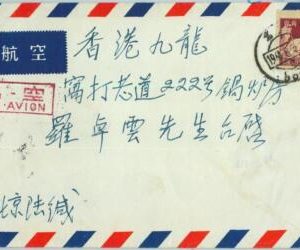 航空
香港九龍
空
AVION
窩打老道222号鍋炉房
羅卓雲先生台啓
京陆缄